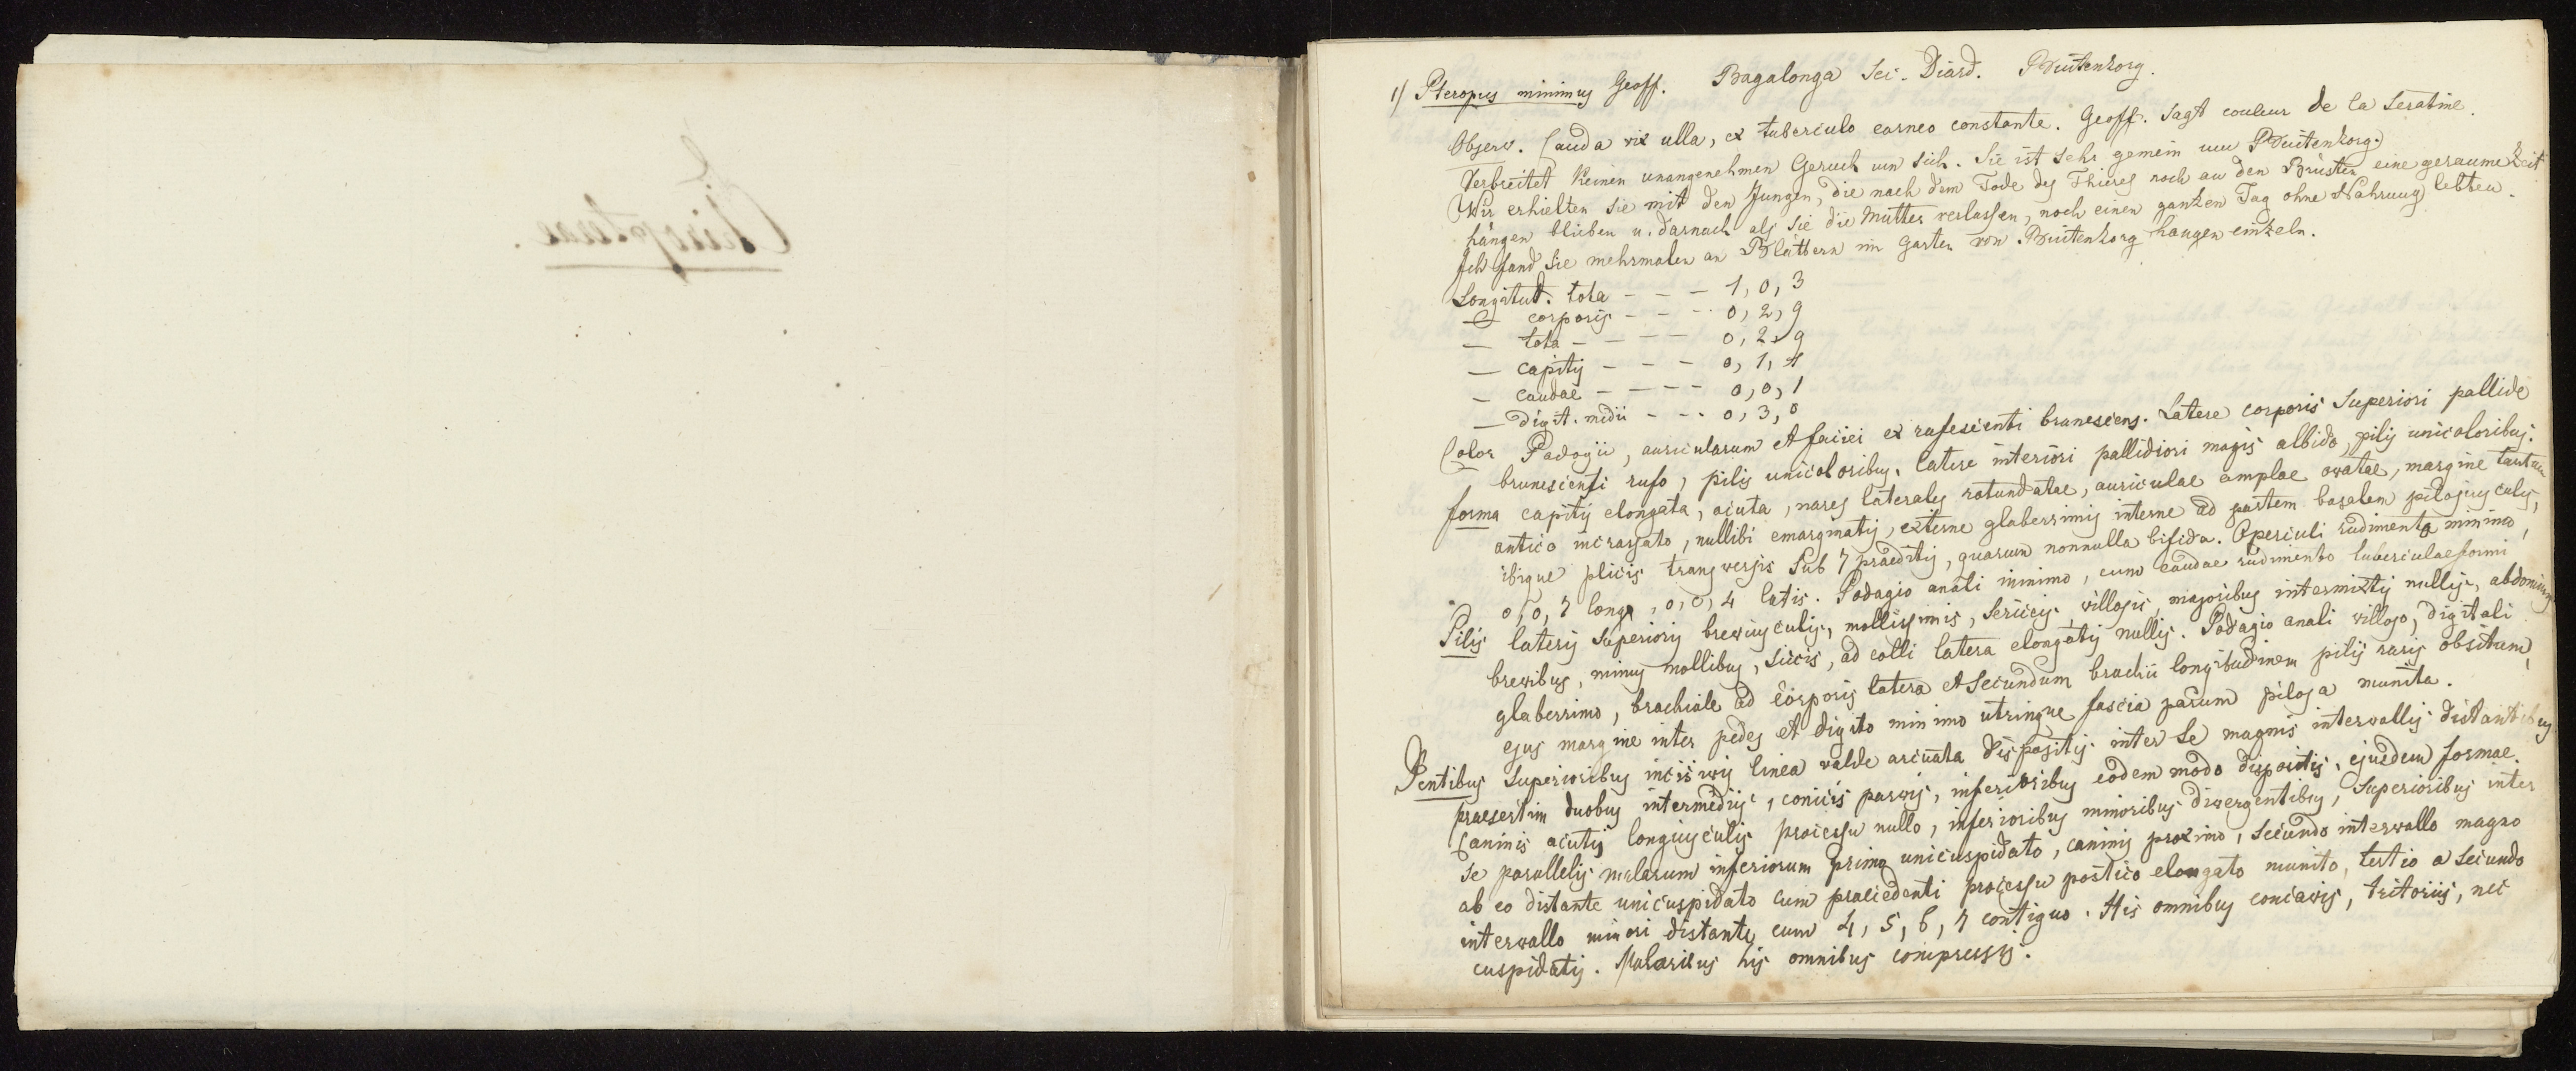 Chiropterae.
1) Pteropus minimus Geoff. Bagalonga sec. Diard. Buitenzorg.
Observ. Cauda vix ulla, ex tuberculo carneo constante. Geoff. sagt couleur de la
Verbreitet keinen unangenehmen Geruch um sich. Sie ist sehr gemein um Buitenzorg.
Wir erhielten sie mit den Jungen, die nach dem Tode des Thieres noch an den Brüsten eine geraume Zeit
hängen blieben u. darnach als sie die Mutter verlassen, noch einen ganzen Tag ohne Nahrung lebten.
Ich fand sie mehrmalen an Blättern im Garten von Buitenzorg hangen einzeln.
Longitud. tota - - - 1, 0, 3
— corporis - - - 0, 2, 9
— tota - - - - 0, 2, 9
— capitis - - - 0, 1, 1
— caudae - - - - 0, 0, 1
— digit. medii - - - 0, 3, 0
Color Padagii, auricularum et faciei ex rufescenti brunescens. Latere corporis superiori pallide
brunescenti rufo, pilis unicoloribus. latere interiori pallidiori magis albido, pilis unicoloribus.
forma capitis elongata, acuta, nares laterales rotundatae, auriculae amplae ovatae, margine tantum
antico incrassato, nullibi emarginatis, externe glaberrimis interne ad partem basalem pilosiusculis,
ibique plicis transversis sub 7 praeditis, quarum nonnulla bifida. Operculi rudimento minimo,
0, 0, 7 longa, 0, 0, 4 latis. Padagio anali minimo, cum caudae rudimento tuberculaeformi
Pilis lateris superioris breviusculis, mollissimis, sericeis, villosis, majoribus intermixtis nullis, abdominis
brevibus, minus mollibus, siccis, ad colli latera elongatis nullis. Padagio anali villoso, digitali
glaberrimo, brachiale ad corporis latera et secundum brachii longitudinem pilis raris obsitum,
ejus margine inter pedes et digito minimo utrinque fascia parum pilosa munita.
Dentibus superioribus incisivis linea valde arcuata dispositis inter se magnis intervallis distantibus
praesertim duobus intermediis, conicis parvis, inferioribus eodem modo disposotis, ejusdem formae.
Caninis acutis longiusculis processu nullo, inferioribus minoribus divergentibus, superioribus inter
se parallelis molarum inferiorum primo unicuspidato, caninis proximo, secundo intervallo magno
ab eo distante unicuspidato cum praecedenti processu postico elongato munito, tertio a secundo
intervallo minori distante, cum 4, 5, 6, 7 contiguo. His omnibus concavis, tritoriis, nec
cuspidatis. Molaribus his omnibus compressis.